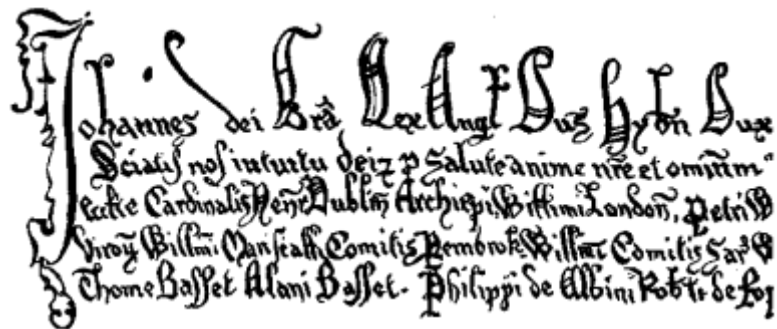 Johannes dei Grã Rex Angł Dns Hybñ Dux
Sciatis nos intuitu dei ⁊ p salute anime nr̃e et omniũm
eccłie Cardinalis Henr̃ Dublin Archiepi, Willimi London, Petri W
Willmi Marscalli Comitis Pembrok Willmi Comitis Sar
Thome Basset Alani Basset. Philippi de Albini Rob̃ti de